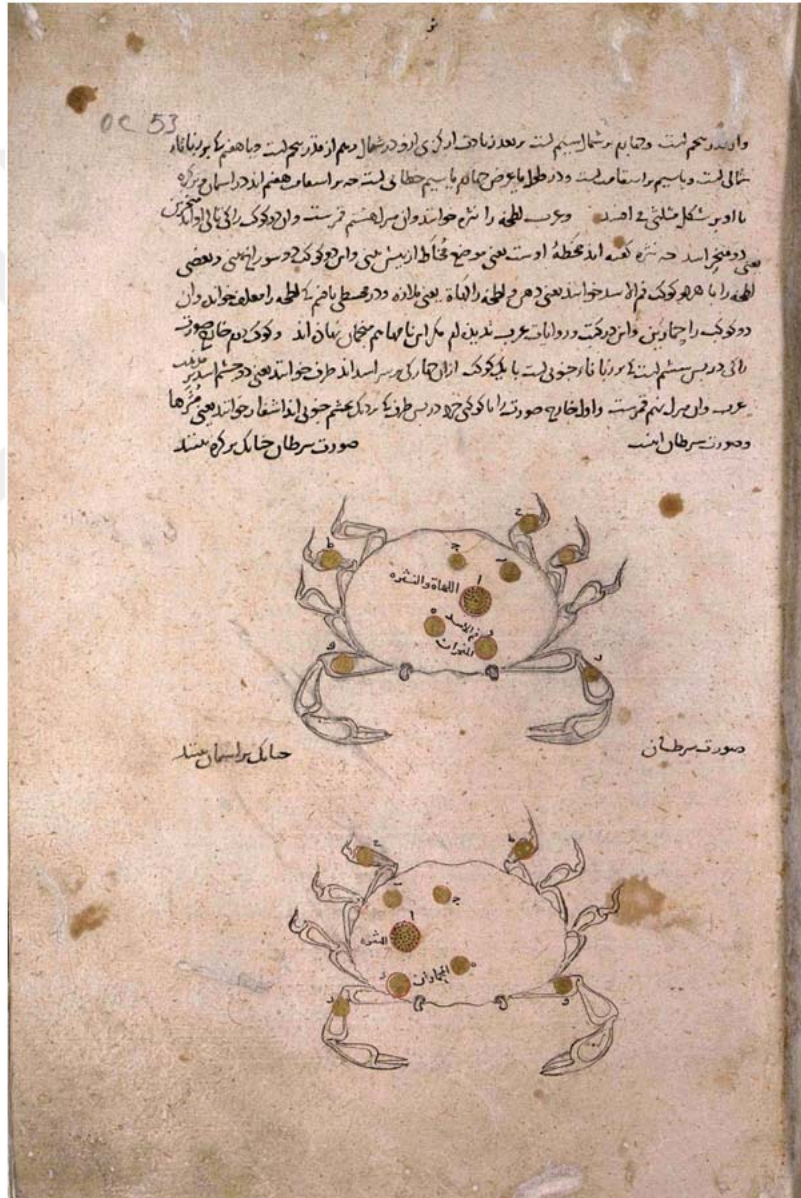 OC 53
و از قدر پنجم است و چهارم بر شمال سیم است بر بعد زیادت از کزی او در شمال دهم از قدر پنجم است و با هفتم که بر زباناء
شمالی است و با سیم بر استقامت است و در طول با عرض چهارم با سیم خطایی است چه بر استقامت هفتم اند در آسمان و بر کره
با او بر شکل مثلثی می افتند و عرب لطخه را نثره خوانند و آن منزل هشتم قمرست و آن دو کوکب را که تالی او اند منخرین
یعنی دو منخر اسد چه نثره گفته اند مخطهٔ اوست یعنی موضع مخاط از پیش بینی و این دو کوکب دو سوراخ بینی و بعضی
لطخه را با هر دو کوکب فم الاسد خوانند یعنی دهن و لطخه را لهاة یعنی ملازه و در مجسطی با فم که لطخه را معلف خواند و آن
دو کوکب را حمارین و این در کتب و روایات عرب ندیدن لم مکر این نامها هم منجمان نهان اند و کوکب دوم خارج صورت
را که در پس ششم است که بر زبانا جنوبی است با یک کوکب از آن چهار که بر سر اسد اند طرف خوانند یعنی دو چشم اسد نزدیک
عرب و آن منزل نهم قمرست و اول خارج صورت را با کوکبی خرد در پس طرف که نزدیک چشم جنوبی اند اشفار خوانند یعنی مژها
و صورت سرطان اینست صورت سرطان چنانک بر کره بینند
ب
ج
ا
اللهاة والنثره
ط
فم الاسد
المنخران
ه
د
و
ز
صورت سرطان چنانک بر آسمان بینند
ح
ط
ب
ج
ا
النثره
ه
الحماران
د
و
ز